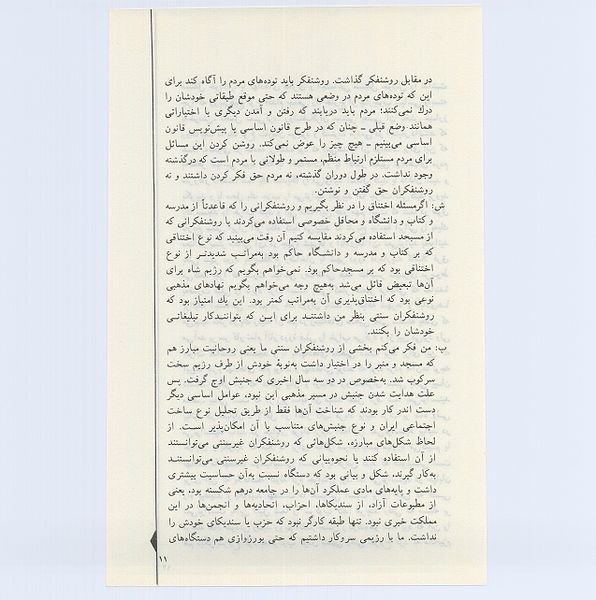 در مقابل روشنفکر گذاشت. روشنفکر باید توده‌های مردم را آگاه کند برای
این که توده‌های مردم در وضعی هستند که حتی موقع طبقاتی خودشان را
درك نمی‌کنند؛ مردم باید دریابند که رفتن و آمدن دیگری با اختیاراتی
همانند وضع قبلی ـ چنان که در طرح قانون اساسی یا پیش‌نویس قانون
اساسی می‌بینیم ـ هیچ چیز را عوض نمی‌کند. روشن کردن این مسائل
برای مردم مستلزم ارتباط منظم، مستمر و طولانی با مردم است که درگذشته
وجود نداشت. در طول دوران گذشته، نه مردم حق فکر کردن داشتند و نه
روشنفکران حق گفتن و نوشتن.
ش: اگرمسئله اختناق را در نظر بگیریم و روشنفکرانی را که قاعدتاً از مدرسه
و کتاب و دانشگاه و محافل خصوصی استفاده می‌کردند با روشنفکرانی که
از مسجد استفاده می‌کردند مقایسه کنیم آن وقت می‌بینید که نوع اختناقی
که بر کتاب و مدرسه و دانشگاه حاکم بود به‌مراتب شدیدتر از نوع
اختناقی بود که بر مسجدحاکم بود. نمی‌خواهم بگویم که رژیم شاه برای
آن‌ها تبعیض قائل می‌شد به‌هیچ وجه می‌خواهم بگویم نهادهای مذهبی
نوعی بود که اختناق‌پذیری آن به‌مراتب کمتر بود. این یك امتیاز بود که
روشنفکران سنتی بنظر من داشتند برای این که بتوانندکار تبلیغاتی
خودشان را بکنند.
ب: من فکر می‌کنم بخشی از روشنفکران سنتی ما یعنی روحانیت مبارز هم
که مسجد و منبر را در اختیار داشت به‌نوبهٔ خودش از طرف رژیم سخت
سرکوب شد. به‌خصوص در دو سه سال اخیری که جنبش اوج گرفت. پس
علت هدایت شدن جنبش در مسیر مذهبی این نبود، عوامل اساسی دیگر
دست اندر کار بودند که شناخت آن‌ها فقط از طریق تحلیل نوع ساخت
اجتماعی ایران و نوع جنبش‌های متناسب با آن امکان‌پذیر است. از
لحاظ شکل‌های مبارزه، شکل‌هائی که روشنفکران غیرسنتی می‌توانستند
از آن استفاده کنند یا نحوه‌بیانی که روشنفکران غیرسنتی می‌توانستند
به‌کار گیرند، شکل و بیانی بود که دستگاه نسبت به‌آن حساسیت بیشتری
داشت و پایه‌های مادی عملکرد آن‌ها را در جامعه درهم شکسته بود، یعنی
از مطبوعات آزاد، از سندیکاها، احزاب، اتحادیه‌ها و انجمن‌ها در این
مملکت خبری نبود. تنها طبقه کارگر نبود که حزب یا سندیکای خودش را
نداشت. ما با رژیمی سروکار داشتیم که حتی بورژوازی هم دستگاه‌های
۱۱